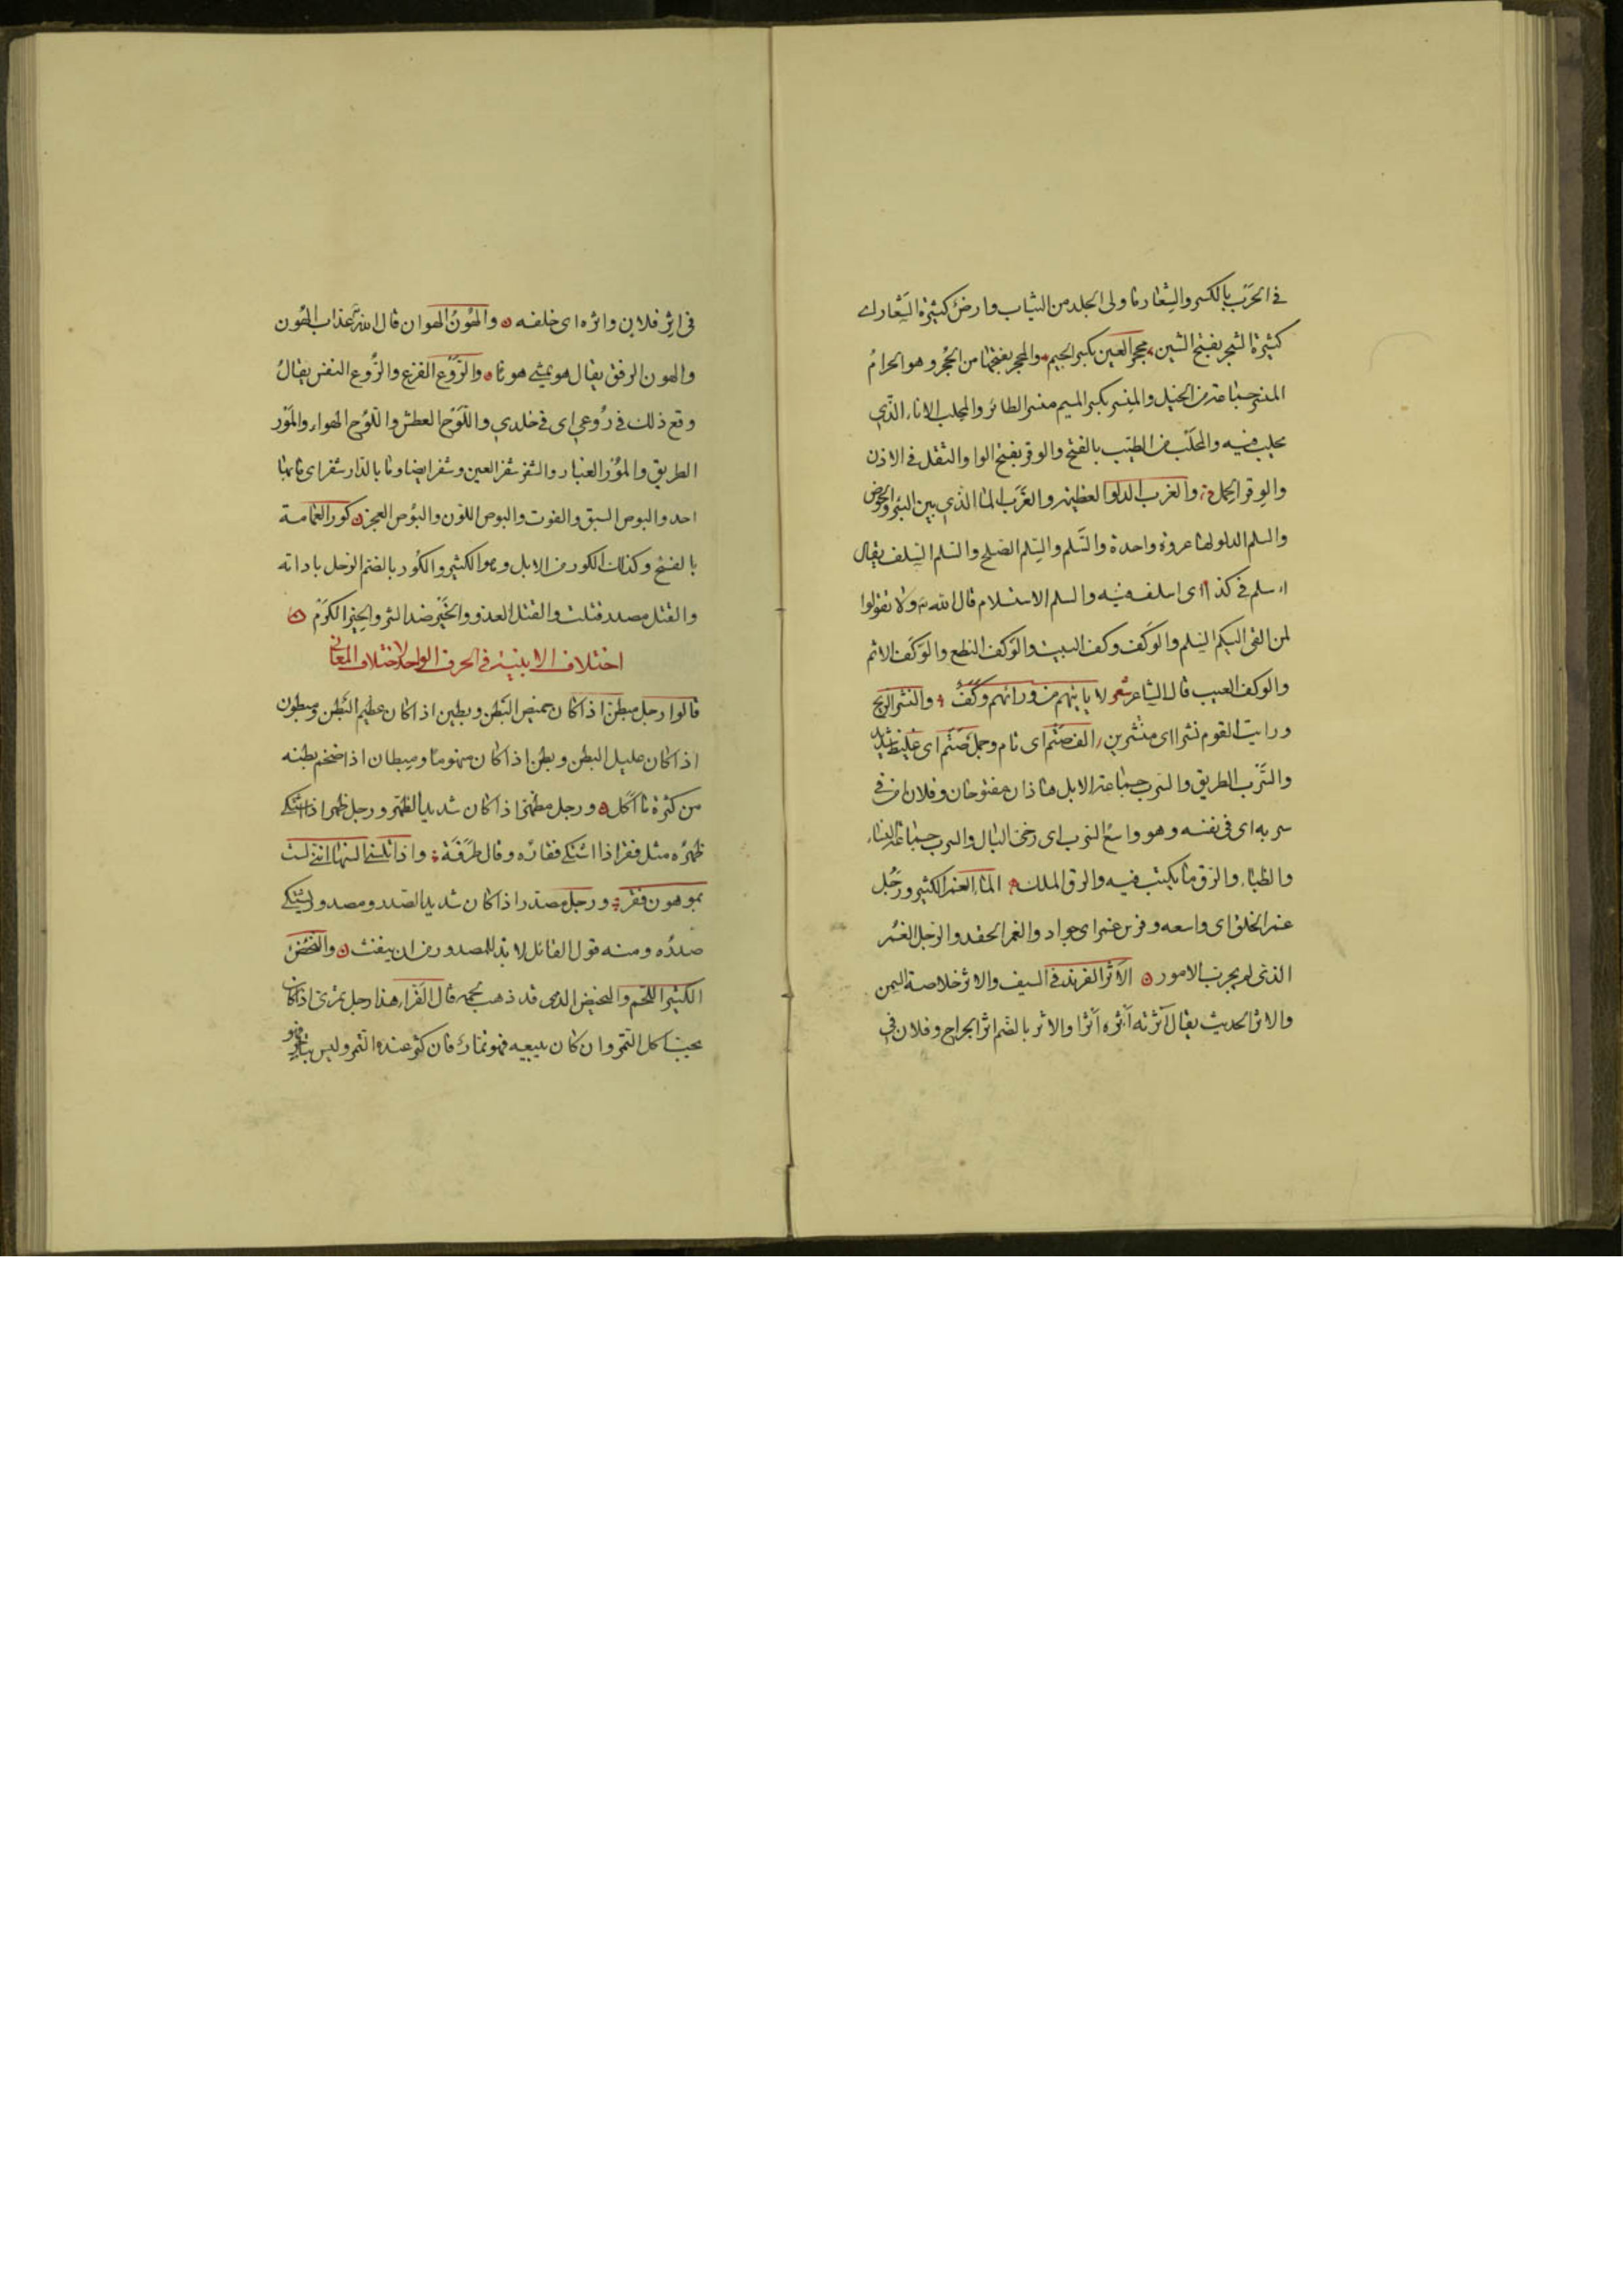 في الحَرَب بالكسر والشِعار ما ولى الجلد من الثياب وارض كثيرة الشَعار اي
كثيرة الشجر بفتح الشين محجر العين بكسر الجيم والمحجر بفتحها من الحُجر وهو الحرامُ
المنسر جماعة من الخيل والمِنسر بكسر الميم منسر الطائر والمحلب الاناء الذي
يحلب فيه والمَحلَب من الطيب بالفتح والوقر بفتح الواو الثقل في الاذن
والوِقر الحمل والغرب الدلو العظيمة والغَرَب الماء الذي بين البئر والحوض
والسلم الدلو لها عروة واحدة والسَلم والسِلم الصلح والسلم السلف يقال
اسلم في كذا اي اسلف فيه والسلم الاستسلام قال الله ولا تقولوا
لمن القى اليكم السلم والوَكَف وكف البيت والوَكف النطع والوَكَف الاثم
والوكف العيب قال الشاعر شعر لا ياتيهم من ورائهم وَكَفُ والنشر الريح
ورايت القوم نشرا اى منتشرين الف صَتْم اى تام وجمل صَتْم اى غليظ شديد
والسَّرْب الطريق والسرب جماعة الابل هاذان مفتوحان وفلان امن في
سربه اى في نفسه وهو واسع السرب اى رخى البال والسرب جماعة النساء
والظباء والرَق ما يكتب فيه والرق الملك الماء الغمر الكثير ورَجُل
غمر الخلق اى واسعه وفرس غمر اى جواد والغمر الحقد والرجل الغُمر
الذى لم يجرب الامور الاَثر الفرند في السيف والاثر خلاصة السمن
والاثر الحديث يقال آثرته آثره اَثرا والاثر بالضم اثر الجراح وفلان في
في اِثر فلان واثره اى خلفه والهُونُ الهوان قال الله عذاب الهُون
والهون الرفق يقال هو يمشي هونا والرَّوْع الفزع والرُّوع النفس يقالُ
وقع ذلك في رُوعي اى في خلدي واللَّوْح العطش واللُّوح الهواء والمَوْر
الطريق والمُوْر الغبار والشفر شفر العين وشفر ايضا وما بالدار شفر اى ما بها
احد والبوص السبق والفوت والبوص اللون والبُوص العجز كور العمامة
بالفتح وكذلك الكور من الابل وهو الكثير والكُور بالضم الرحل باداته
والقتل مصدر قتلت والقتل العدو والخَيْر ضد الشر والخِير الكَرَم
اختلاف الابنية في الحرف الواحد لاختلاف المعانى
قالوا رجل مبطن اذا كان خميص البَطن وبطين اذا كان عظيم البَطن ومبطون
اذا كان عليل البطن وبطن اذا كان منهوما ومِبطان اذا ضخم بطنه
من كثرة ما اكل ورجل مظهر اذا كان شديد الظهر ورجل ظهر اذا اشتكى
ظهرُه مثل فقر اذا اشتكى فقاره وقال طَرَفَة واذا تلسننى السنها اننى لست
بموهون فقر ورجل مصدر اذا كان شديد الصدر ومصدور يشتكى
صدرُه ومنه قول القائل لا بد للمصدور من ان ينفث والنَّحضُ
الكثير اللحم والنحيض الذى قد ذهب لحمه قال الفَرّاء هذا رجل تمرى اذا كان
يحب اكل التمر وان كان يبيعه فهو تمار فان كثر عنده التمر وليس بتاجر فهو